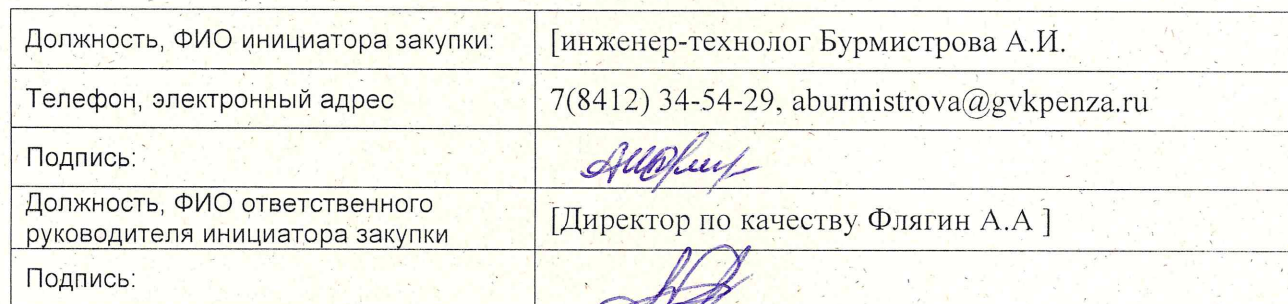 Должность, ФИО инициатора закупки: [инженер-технолог Бурмистрова А.И.
Телефон, электронный адрес 7(8412) 34-54-29, aburmistrova@gvkpenza.ru
Подпись:
Должность, ФИО ответственного
руководителя инициатора закупки [Директор по качеству Флягин А.А ]
Подпись: